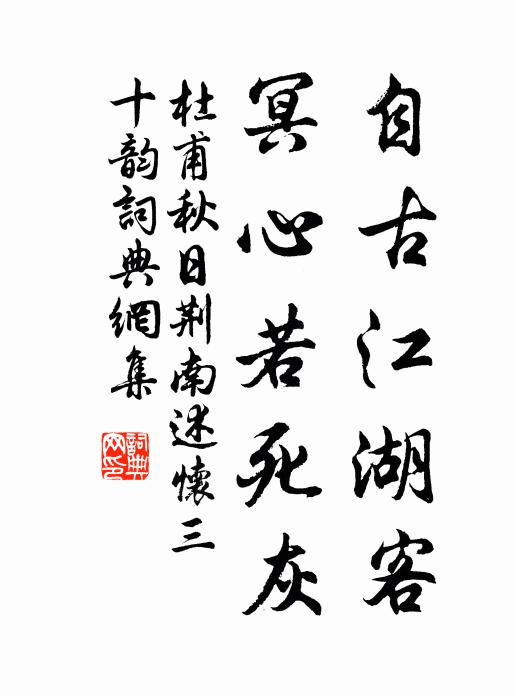 自古江湖客
冥心若死灰
杜甫秋日荆南述懷三
十韵詞典網集
詞典網印